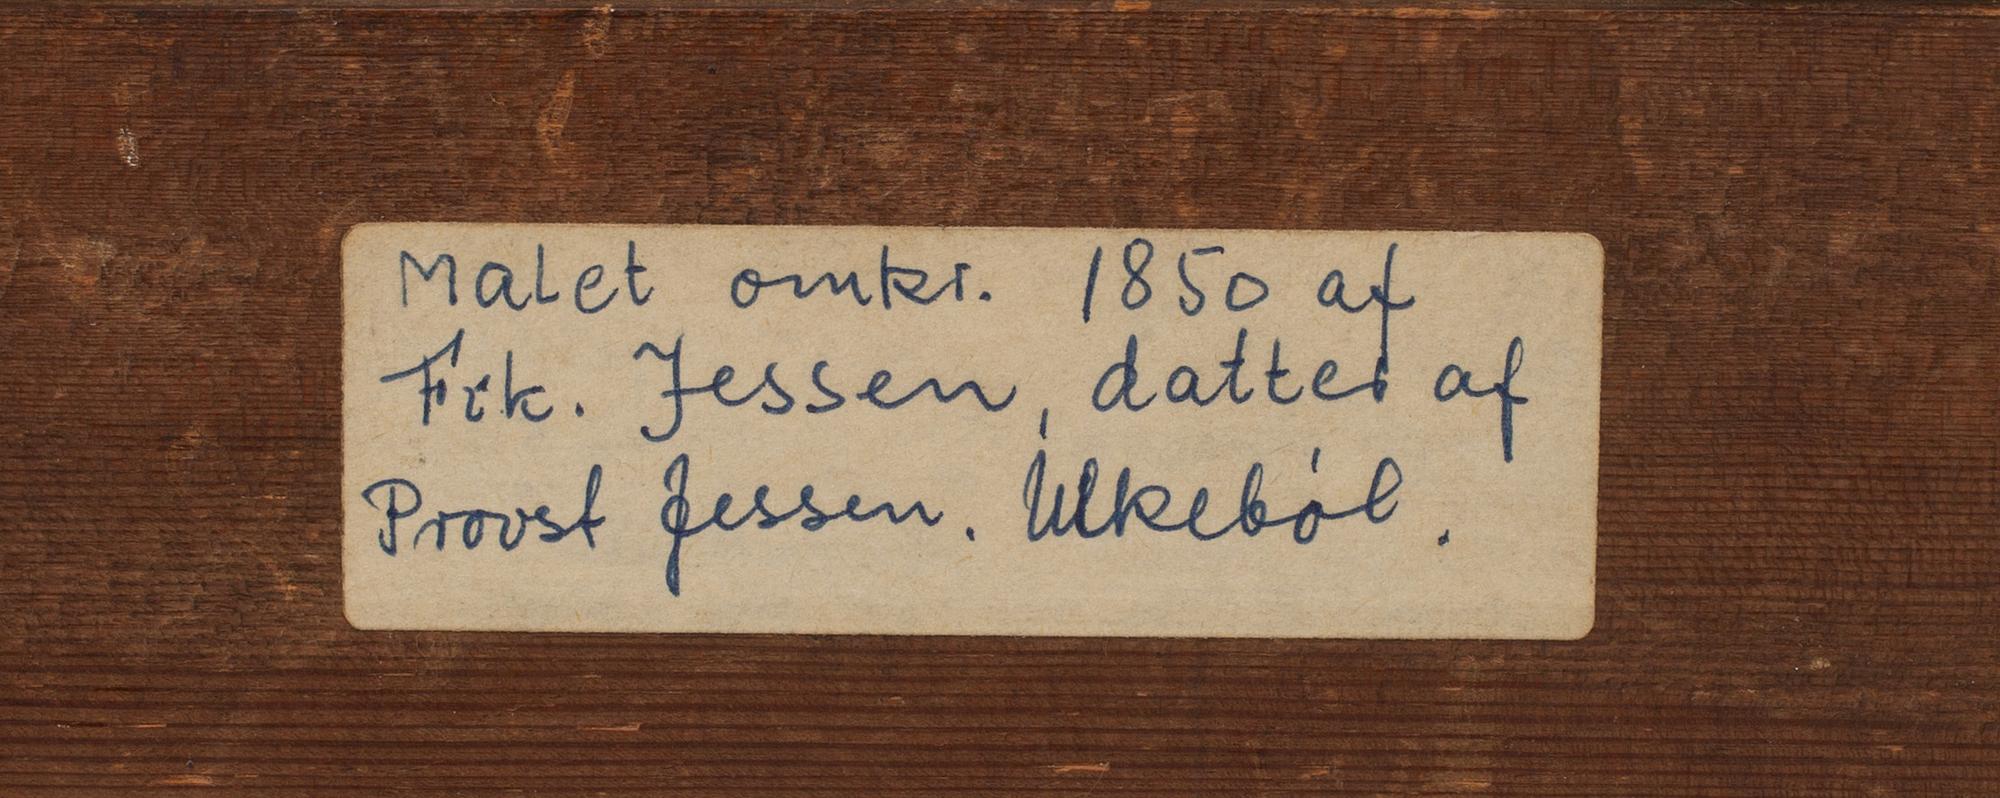 Malet omkr. 1850 af
Frk. Jessen, datter af
Provst Jessen. Ulkeból.